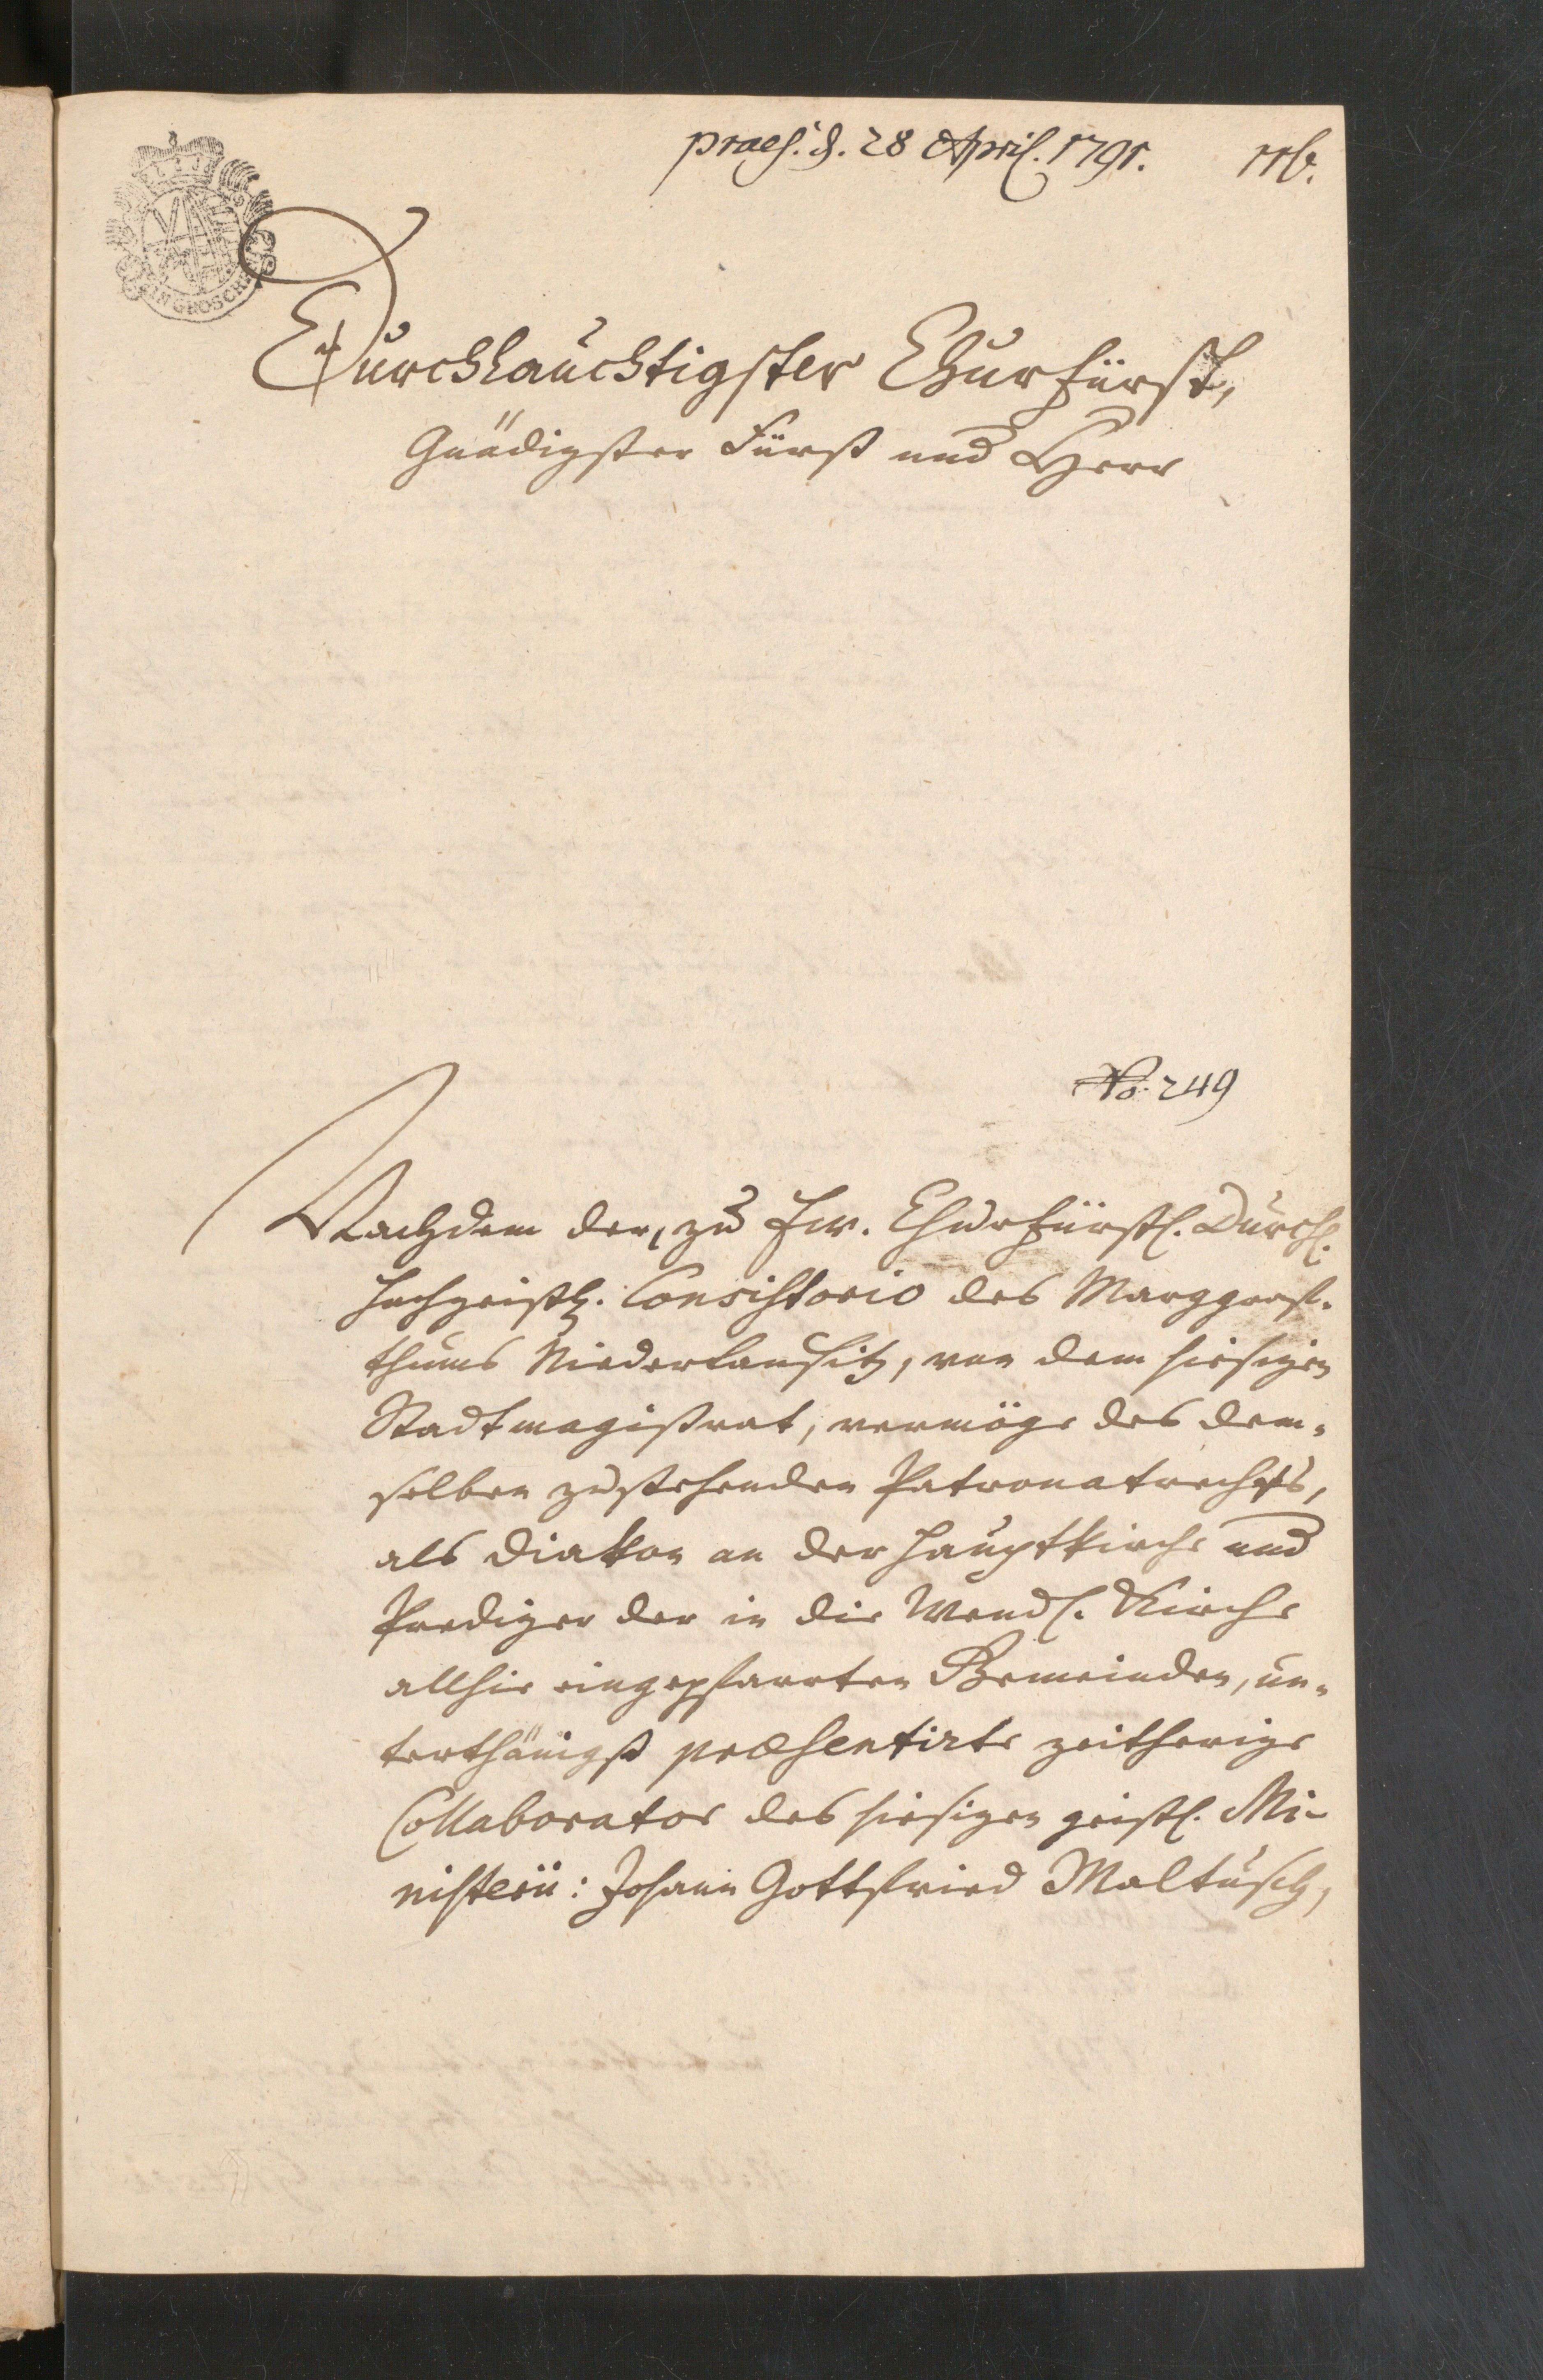 praes. d. 28 April. 1791.
116.
EIN GROSCHEN
Durchlauchtigster Churfürst,
Gnädigster Fürst und Herr
No. 249
Nachdem der, zu Ew. Churfürstl. Durchl.
Hochgeistl. Consistorio des Marggraf-
thums Niederlausitz, von dem hiesigen
Stadtmagistrat, vermöge des dem-
selben zustehenden Patronatrechts,
als Diakon an der Hauptkirche und
Prediger der in die Wend. Kirche
allhie eingepfarrten Gemeinden, un-
terthänigst præsentirte zeitherige
Collaborator des hiesigen geistl. Mi-
nisterii: Johann Gottfried Maltusch,